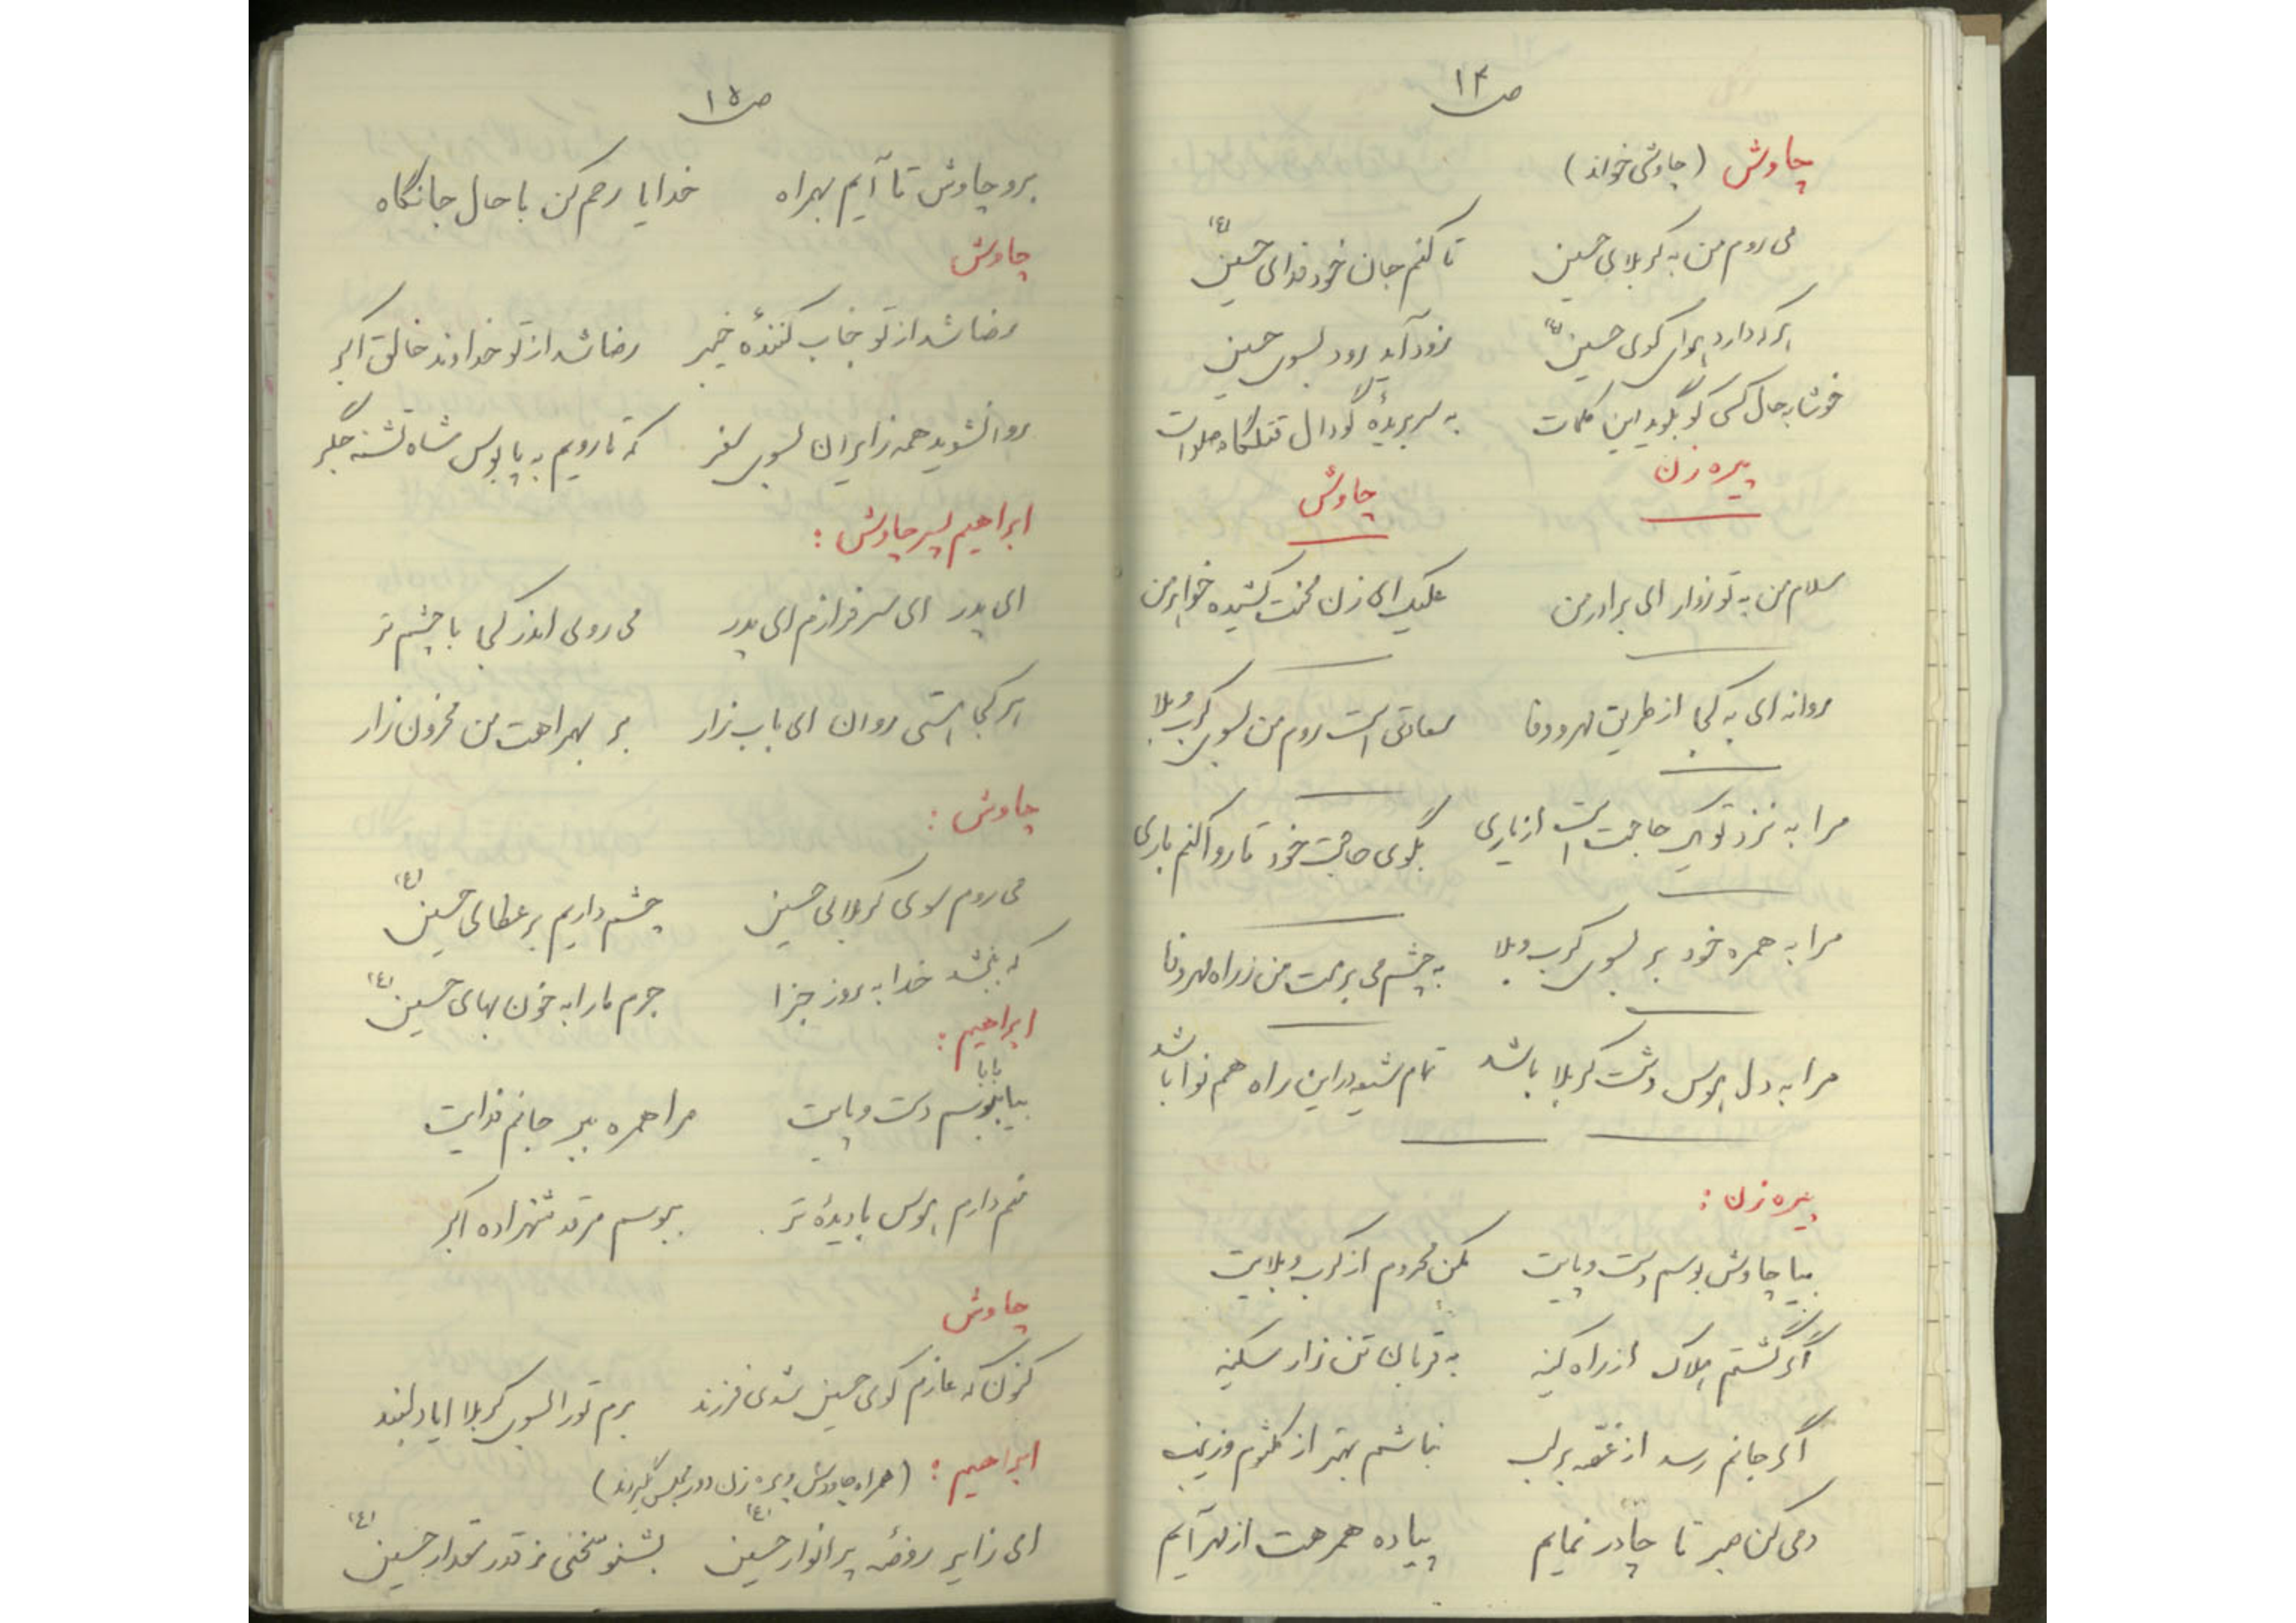 ص۱۴
چاوش (چاوشی خواند)
می روم من به کربلای حسین تا کنم جان خود فدای حسین (ع)
هرکه دارد هوای کوی حسین (ع) زود آید رود بسوی حسین
خوشا به حال کسی کو بگوید این کلمات به سر بریدهٔ گودال قتلگاه صلوات
پیره زن
چاوش
سلام من به تو زوار ای برادر من علیک ای زن محنت کشیده خواهر من
روانه ای به کجا از طریق مهر و وفا سعادتی است روم من بسوی کرب و بلا
مرا به نزد تو یک حاجت است از یاری بگوی حاجت خود تا روا کنم باری
مرا به همره خود بر بسوی کرب و بلا به چشم می برمت من ز راه مهر و وفا
مرا به دل هوس دشت کربلا باشد تمام شیعه در این راه هم نوا باشد
پیره زن :
بیا چاوش بوسم دست و پایت مکن محروم از کرب و بلایت
اگر گشتم هلاک از راه کینه به قربان تن زار سکینه
اگر جانم رسد از غصّه بر لب نباشم بهتر از کلثوم و زینب
دمی کن صبر تا چادر نمایم پیاده همرهت از مهر آیم
ص۱۵
برو چاوش تا آیم بهمراه خدایا رحم کن با حال جانگاه
چاوش
رضا شد از تو جناب کنندهٔ خیبر رضا شد از تو خداوند خالق اکبر
روانشوید همه زایران بسوی سفر که تا رویم به پابوس شاه تشنه جگر
ابراهیم پسر چاوش :
ای پدر ای سرفرازم ای پدر می روی اندر کجا با چشم تر
هر کجا هستی روان ای باب زار بر بهمراهت من محزون زار
چاوش :
می روم سوی کربلای حسین چشم داریم بر عطای حسین (ع)
که بخشد خدا به روز جزا جرم ما را به خون بهای حسین (ع)
ابراهیم :
بیا بابا بوسم دست و پایت مرا همره ببر جانم فدایت
منم دارم هوس با دیدهٔ تر ببوسم مرقد شهزاده اکبر
چاوش
کنون که عازم کوی حسین شدی فرزند برم تو را بسوی کربلا ایا دلبند
ابراهیم : (همراه چاووش و پیره زن دور مجلس گردند)
ای زایر روضه پر انوار حسین (ع) بشنو سخنی ز قدر مقدار حسین (ع)